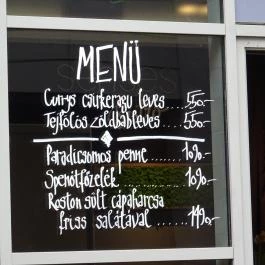 MENÜ
Currys csirkeragu leves....550.-
Tejfölös zöldbableves....550
Paradicsomos penne.....1090.-
Spenótfőzelék.......1090.-
Roston sült cápaharcsa
friss salátával.....1490.-